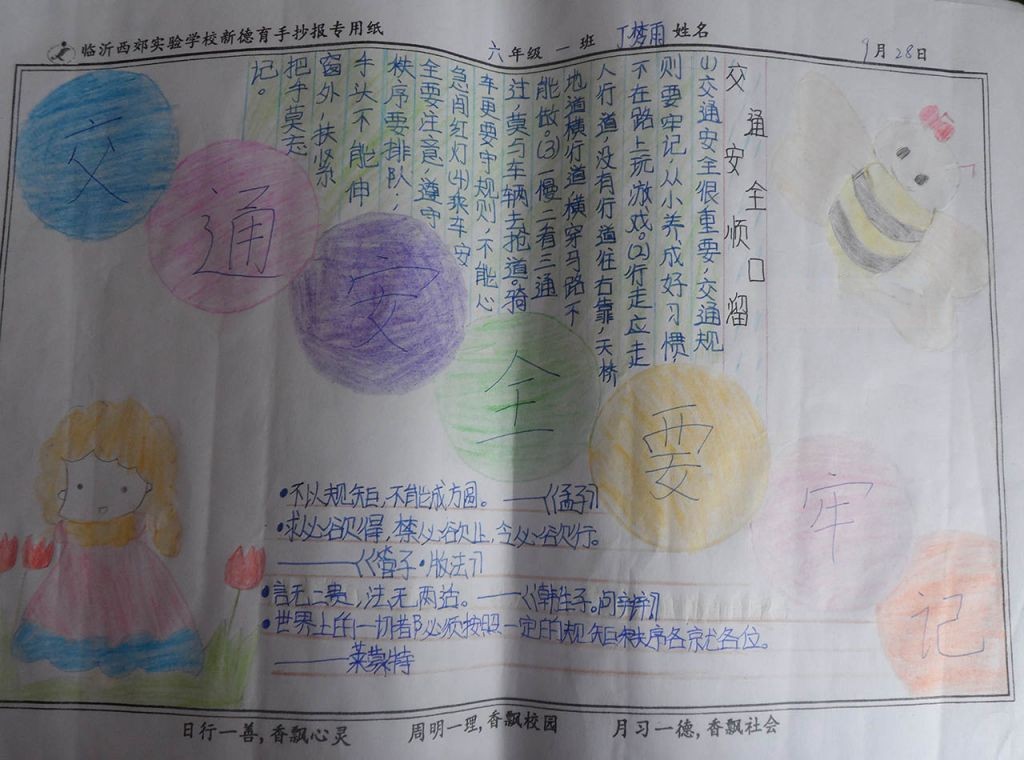 临沂西郊实验学校新德育手抄报专用纸
六年级 一班 丁梦雨 姓名
9月28日
交通安全要牢记
交通安全顺口溜
(1)交通安全很重要,交通规
则要牢记从小养成好习惯,
不在路上玩游戏。(2)行走应走
人行道,没有行道往右靠,天桥
地道横行道横穿马路不
能做。(3)一慢二看三通
过,莫与车辆去抢道。骑
车更要守规则,不能心
急闯红灯(4)乘车安
全要注意,遵守
秩序要排队,
手头不能伸
窗外,扶紧
把手莫忘
记。
•不以规矩,不能成方圆。——《孟子》
•求必欲得,禁必欲止,令必欲行。
——《管子·版法》
•言无二贵,法无两适。——《韩非子。问辩》
•世界上的一切都必须按照一定的规矩秩序各就各位。
——莱蒙特
日行一善,香飘心灵 周明一理,香飘校园 月习一德,香飘社会